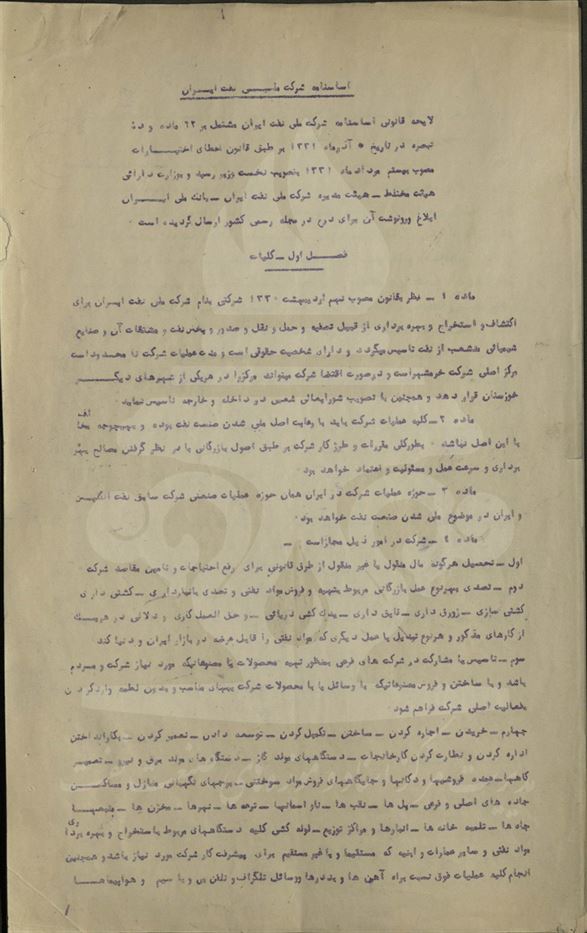 اساسنامه شرکت ملی نفت ایران
لایحه قانونی اساسنامه شرکت ملی نفت ایران مشتمل بر ۶۲ ماده و ده
تبصره در تاریخ ۵ آذرماه ۱۳۳۱ بر طبق قانون اعطای اختیارات
مصوب بیستم مردادماه ۱۳۳۱ بتصویب نخست وزیر رسید و بوزارت دارائی
هیئت مختلط ــ هیئت مدیره شرکت ملی نفت ایران ــ بانک ملی ایران
ابلاغ ورونوشت آن برای درج در مجله رسمی کشور ارسال گردیده است ۰
فصل اول ــ کلیات
ماده ۱ ــ نظر بقانون مصوب نهم اردیبهشت ۱۳۳۰ شرکتی بنام شرکت ملی نفت ایران برای
اکتشاف و استخراج و بهره برداری از قبیل تصفیه و حمل و نقل و صدور و پخش نفت و مشتقات آن و صنایع
شیمیائی منشعب از نفت تاسیس میگردد و دارای شخصیت حقوقی است و مدت عملیات شرکت نا محدود است
مرکز اصلی شرکت خرمشهر است و در صورت اقتضا شرکت میتواند مرکز را در هریکی از شهرهای دیگر
خوزستان قرار دهد و همچنین با تصویب شورایعالی شعبی در داخله و خارجه تاسیس نماید ۰
ماده ۲ ــ کلیه عملیات شرکت باید با رعایت اصل ملی شدن صنعت نفت بوده و بهیچوجه مخالف
با این اصل نباشد ۰ بطورکلی مقررات و طرز کار شرکت بر طبق اصول بازرگانی با در نظر گرفتن مصالح بهره
برداری و سرعت عمل و مسئولیت و اعتماد خواهد بود ۰
ماده ۳ ــ حوزه عملیات شرکت در ایران همان حوزه عملیات صنعتی شرکت سابق نفت انگلیس
و ایران در موضوع ملی شدن صنعت نفت خواهد بود ۰
ماده ۴ ــ شرکت در امور ذیل مجاز است ــ
اول ــ تحصیل هرگونه مال منقول یا غیر منقول از طرق قانونی برای رفع احتیاجات و تامین مقاصد شرکت
دوم ــ تصدی بهرنوع عمل بازرگانی مربوط بتهیه و فروش مواد نفتی و تصدی بانبارداری ــ کشتی داری
کشتی سازی ــ زورق داری ــ قایق داری ــ یدک کشی دریائی ــ و حق العمل کاری و دلالی در هریک
از کارهای مذکور و هرنوع تبدیل یا عمل دیگری که مواد نفتی را قابل عرضه در بازار ایران و دنیا کند
سوم ــ تاسیس یا مشارکت در شرکت های فرعی بمنظور تهیه محصولات یا مصنوعاتیکه مورد نیاز شرکت و مردم
باشد و یا ساختن و فروش مصنوعاتیکه با وسائل یا با محصولات شرکت ببهای مناسب و بدون لطمه وارد کردن
بفعالیت اصلی شرکت فراهم شود ۰
چهارم ــ خریدن ــ اجاره کردن ــ ساختن ــ تکمیل کردن ــ توسعه دادن ــ تعمیر کردن ــ بکارانداختن
اداره کردن و نظارت کردن کارخانجات ــ دستگاههای مولد گاز ــ دستگاه های مولد برق و نیرو ــ تعمیر
گاهها ــ عمده فروشیها و دکانها و جایگاههای فروش مواد سوختنی ــ برجهای نگهبانی منازل و مساکن
جاده های اصلی و فرعی ــ پل ها ــ نقب ها ــ بار اندازها ــ ترعه ها ــ نهرها ــ مخزن ها ــ
چاه ها ــ تلمبه خانه ها ــ انبارها و مراکز توزیع ــ لوله کشی کلیه دستگاههای مربوط باستخراج و بهره برداری
مواد نفتی و سایر عمارات و ابنیه که مستقیما و یا غیر مستقیم برای پیشرفت کار شرکت مورد نیاز باشد و همچنین
انجام کلیه عملیات فوق نسبت براه آهن ها و بندرها و وسائل تلگراف و تلفن بی و با سیم و هواپیماها